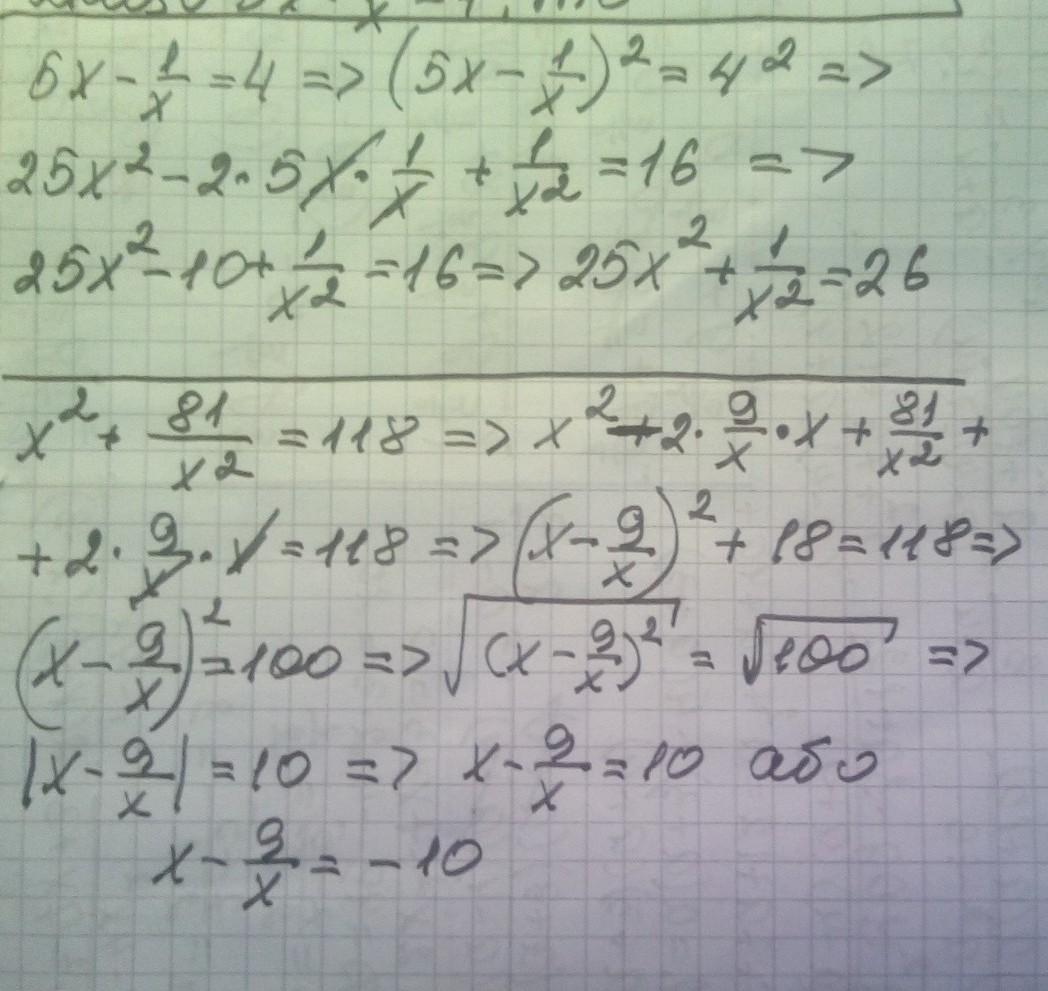 5x - 1/x = 4 => (5x - 1/x)² = 4² =>
25x² - 2·5x·1/x + 1/x² = 16 =>
25x² - 10 + 1/x² = 16 => 25x² + 1/x² = 26
x² + 81/x² = 118 => x² - 2·9/x·x + 81/x² +
+ 2·9/x·x = 118 => (x - 9/x)² + 18 = 118 =>
(x - 9/x)² = 100 => √(x - 9/x)² = √100 =>
|x - 9/x| = 10 => x - 9/x = 10 або
x - 9/x = -10